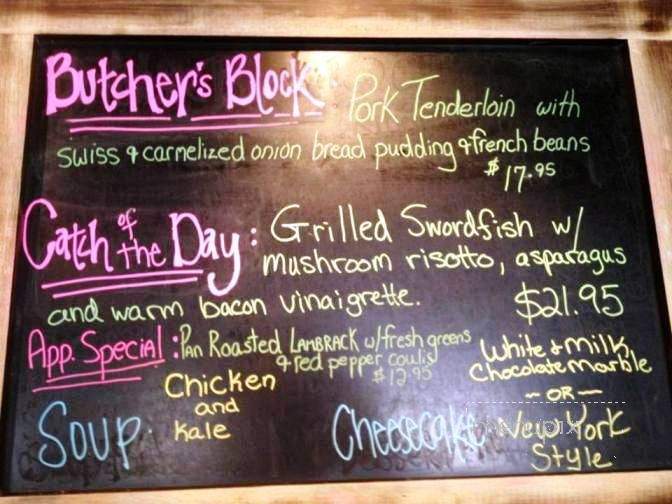 Butcher's Block: Pork Tenderloin with
swiss & carmelized onion bread pudding & french beans
$17.95
Catch of the Day: Grilled Swordfish w/
mushroom risotto, asparagus
and warm bacon vinaigrette. $21.95
App. Special: Pan Roasted LAMBRACK w/fresh greens
& red pepper coulis
$12.95
Soup. Chicken
and
Kale
Cheesecake White & Milk
Chocolate marble
- OR -
New York
Style